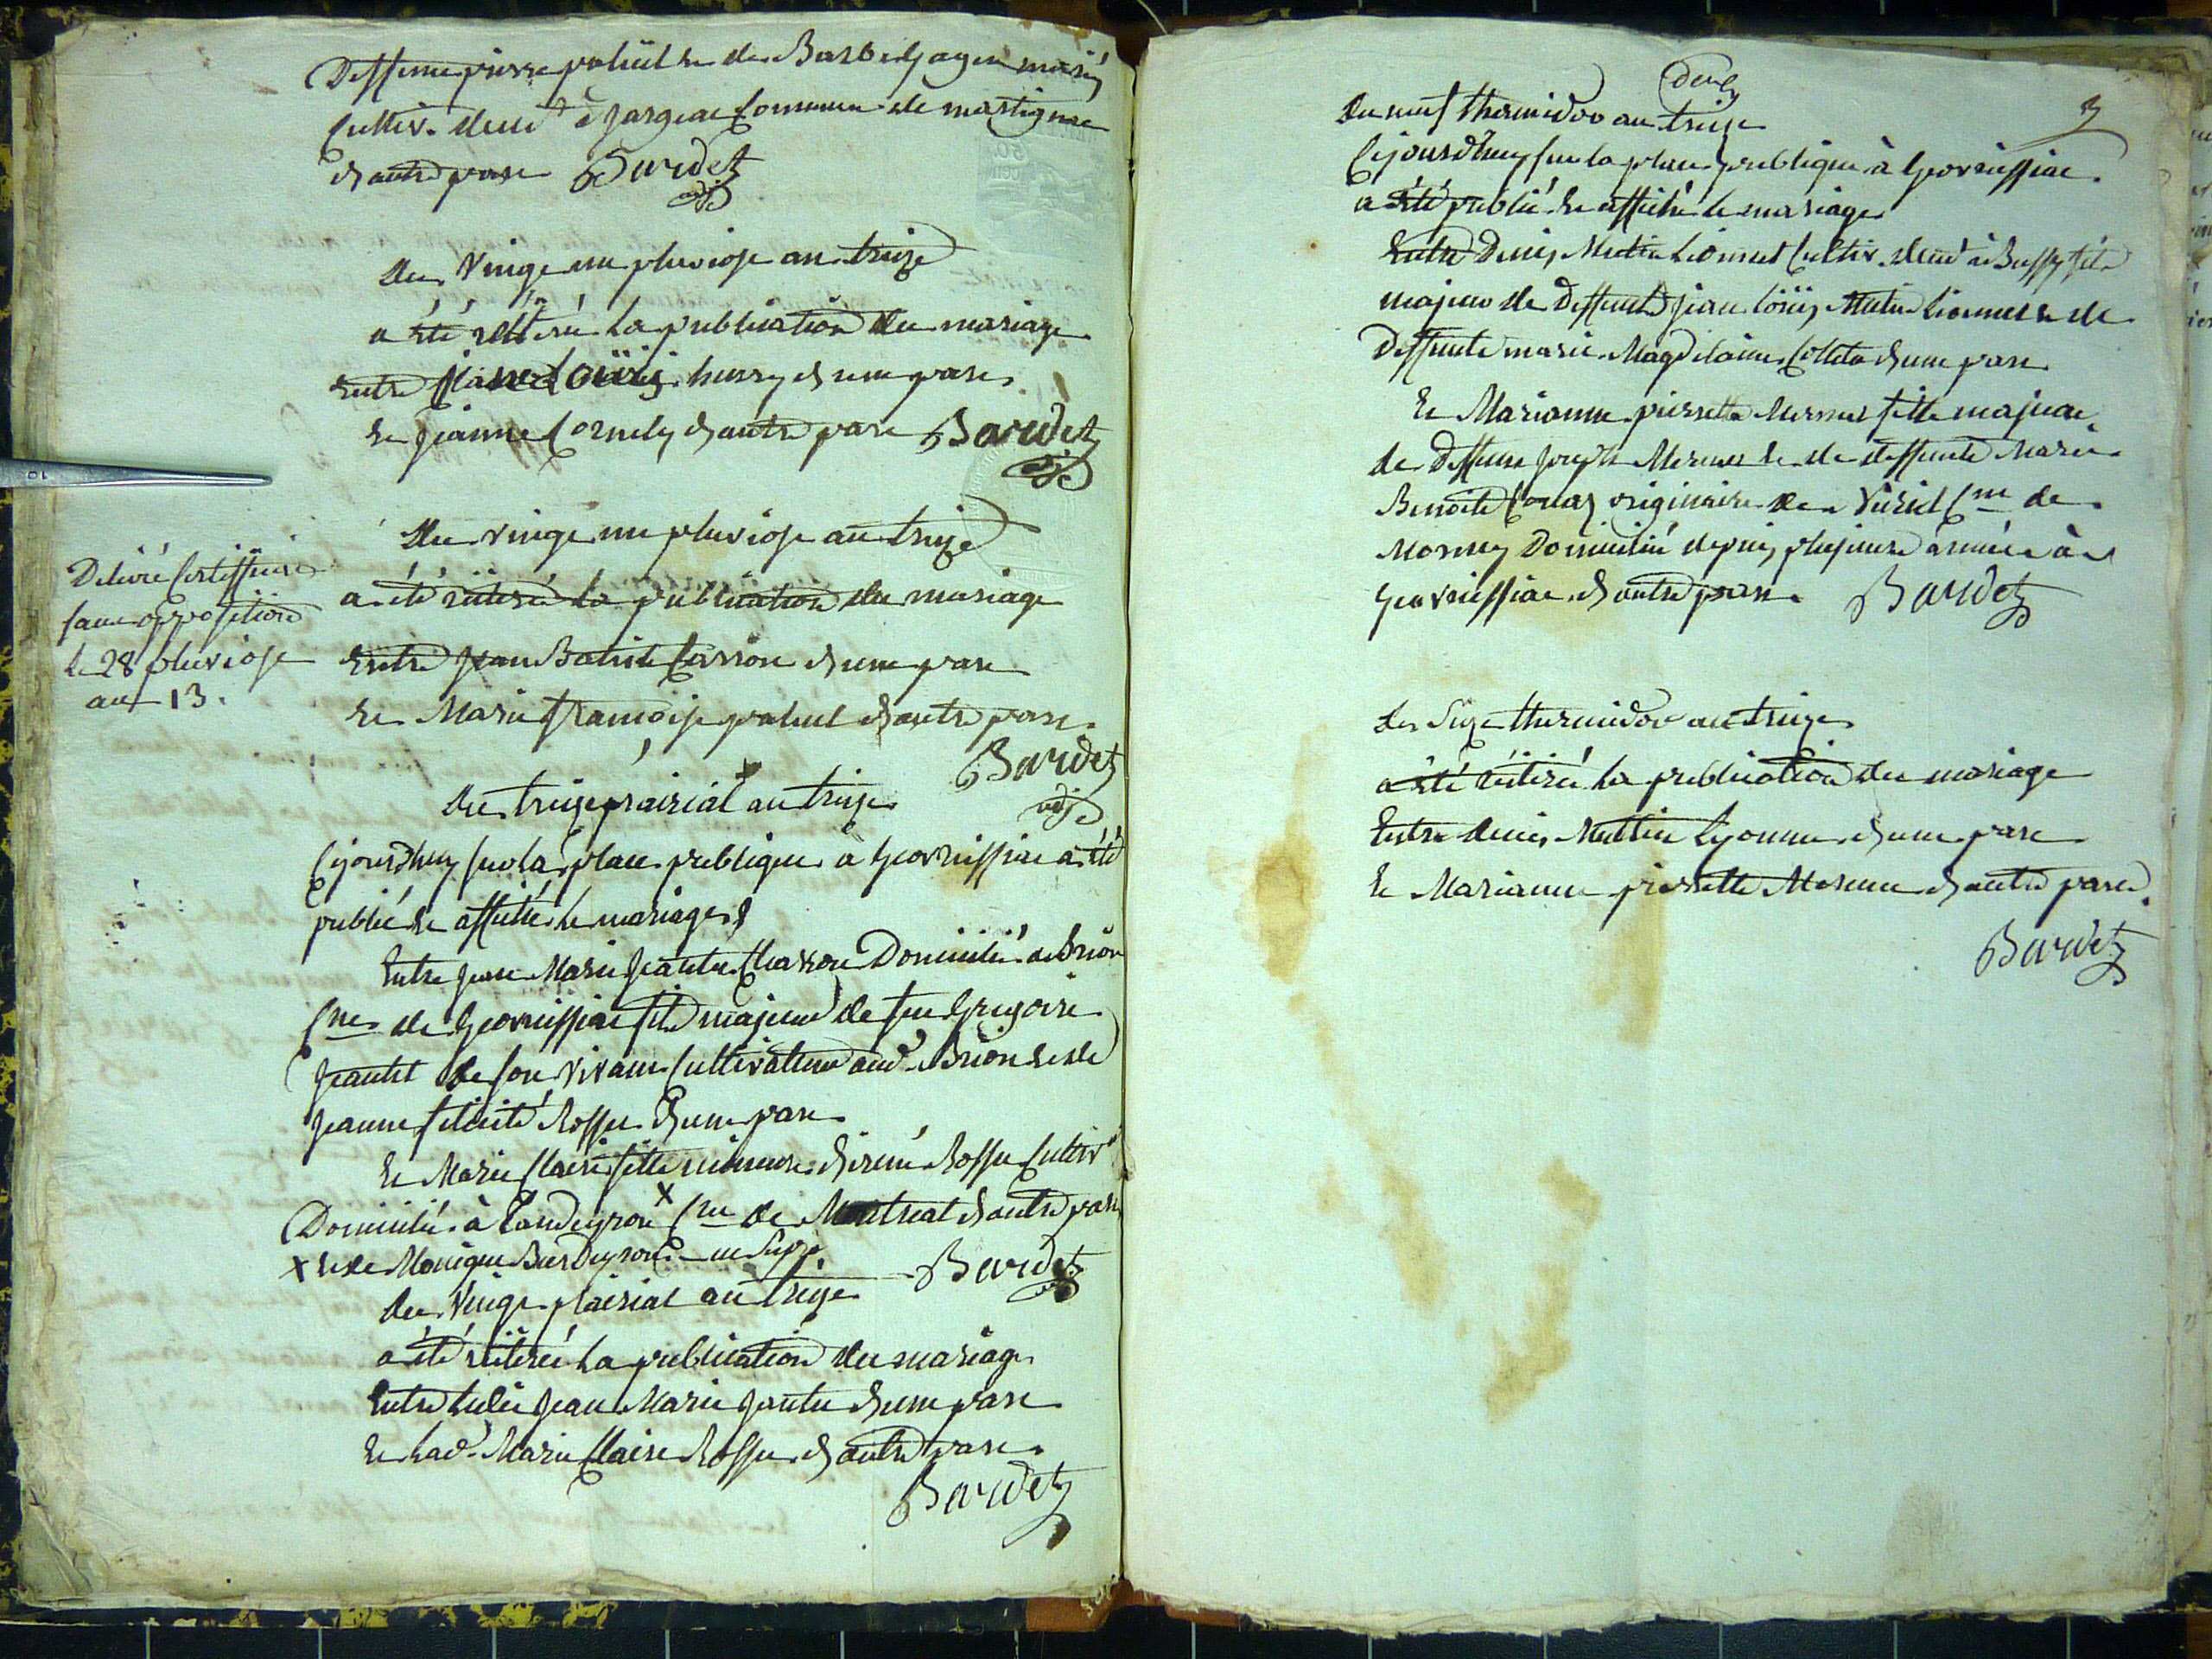 Deffunt pierre pahüd & de Barbe gagen mariés
Cultiv. dem.t à Jargeac Commune de martignac
d'autre part Bardet
adj.
Du vingt un pluviose an treize
a été réitéré la publication du mariage
Entre Louis hurry d'une part
Et Jeanne Cornely d'autre part Bardet
adj.
Du vingt un pluviose an treize
a été réiteré la publication du mariage
Entre Jean Batiste Carron d'une part
Et Marie françoise pahud d'autre part
Bardet
adj.
Delivré Certifficat
sans opposition
le 28 pluviose
an 13.
Du treize prairial an treize
Cejourdhuy sur la place publique à Geovreissiac a été
publié et affiché le mariage
Entre Jean Marie Jeantet Charron Domicilié a brion
Cne de Geovreissiac fils majeur de feu Gregoire
Jeantet de son vivant Cultivateur aud. Brion et de
Jeanne felicité Rosset d'une part
Et Marie Claire fille mineure d'irené Rosset Cultivr
Domicilié à Landeyron X Cne de Montreal d'autre part
X et de Monique Burdeyron Bardet
Du Vingt prairial an treize
a été réiteré la publication du mariage
Entre ledit Jean Marie Jantet d'une part
Et lad. Marie Claire Rosset d'autre part
Bardet
deux
3
Du neuf thermidor an treize
Cejourdhuy sur la place publique à Geovreissiac
a été publié et affiché le mariage
Entre Denis Mutin Lionnet Cultiv. dem.t à Bussy fils
majeur de deffunt Jean Louis Mutin Lionnet & de
Deffunte marie Magdelaine Colleta d'une part
Et Marianne pierrette Mermet fille majeure
de deffunt Joseph Mermet et de deffunte Marie
Benoite Conaz originaire de Viriel Cne de
Mornay Domicilié depuis plusieurs années à
Geovreissiac d'autre part. Bardet
Du Seize thermidor an treize
a été réitéré la publication du mariage
Entre denis Muttin Lyonnet d'une part
Et Marianne pierrette Mermet d'autre part.
Bardet